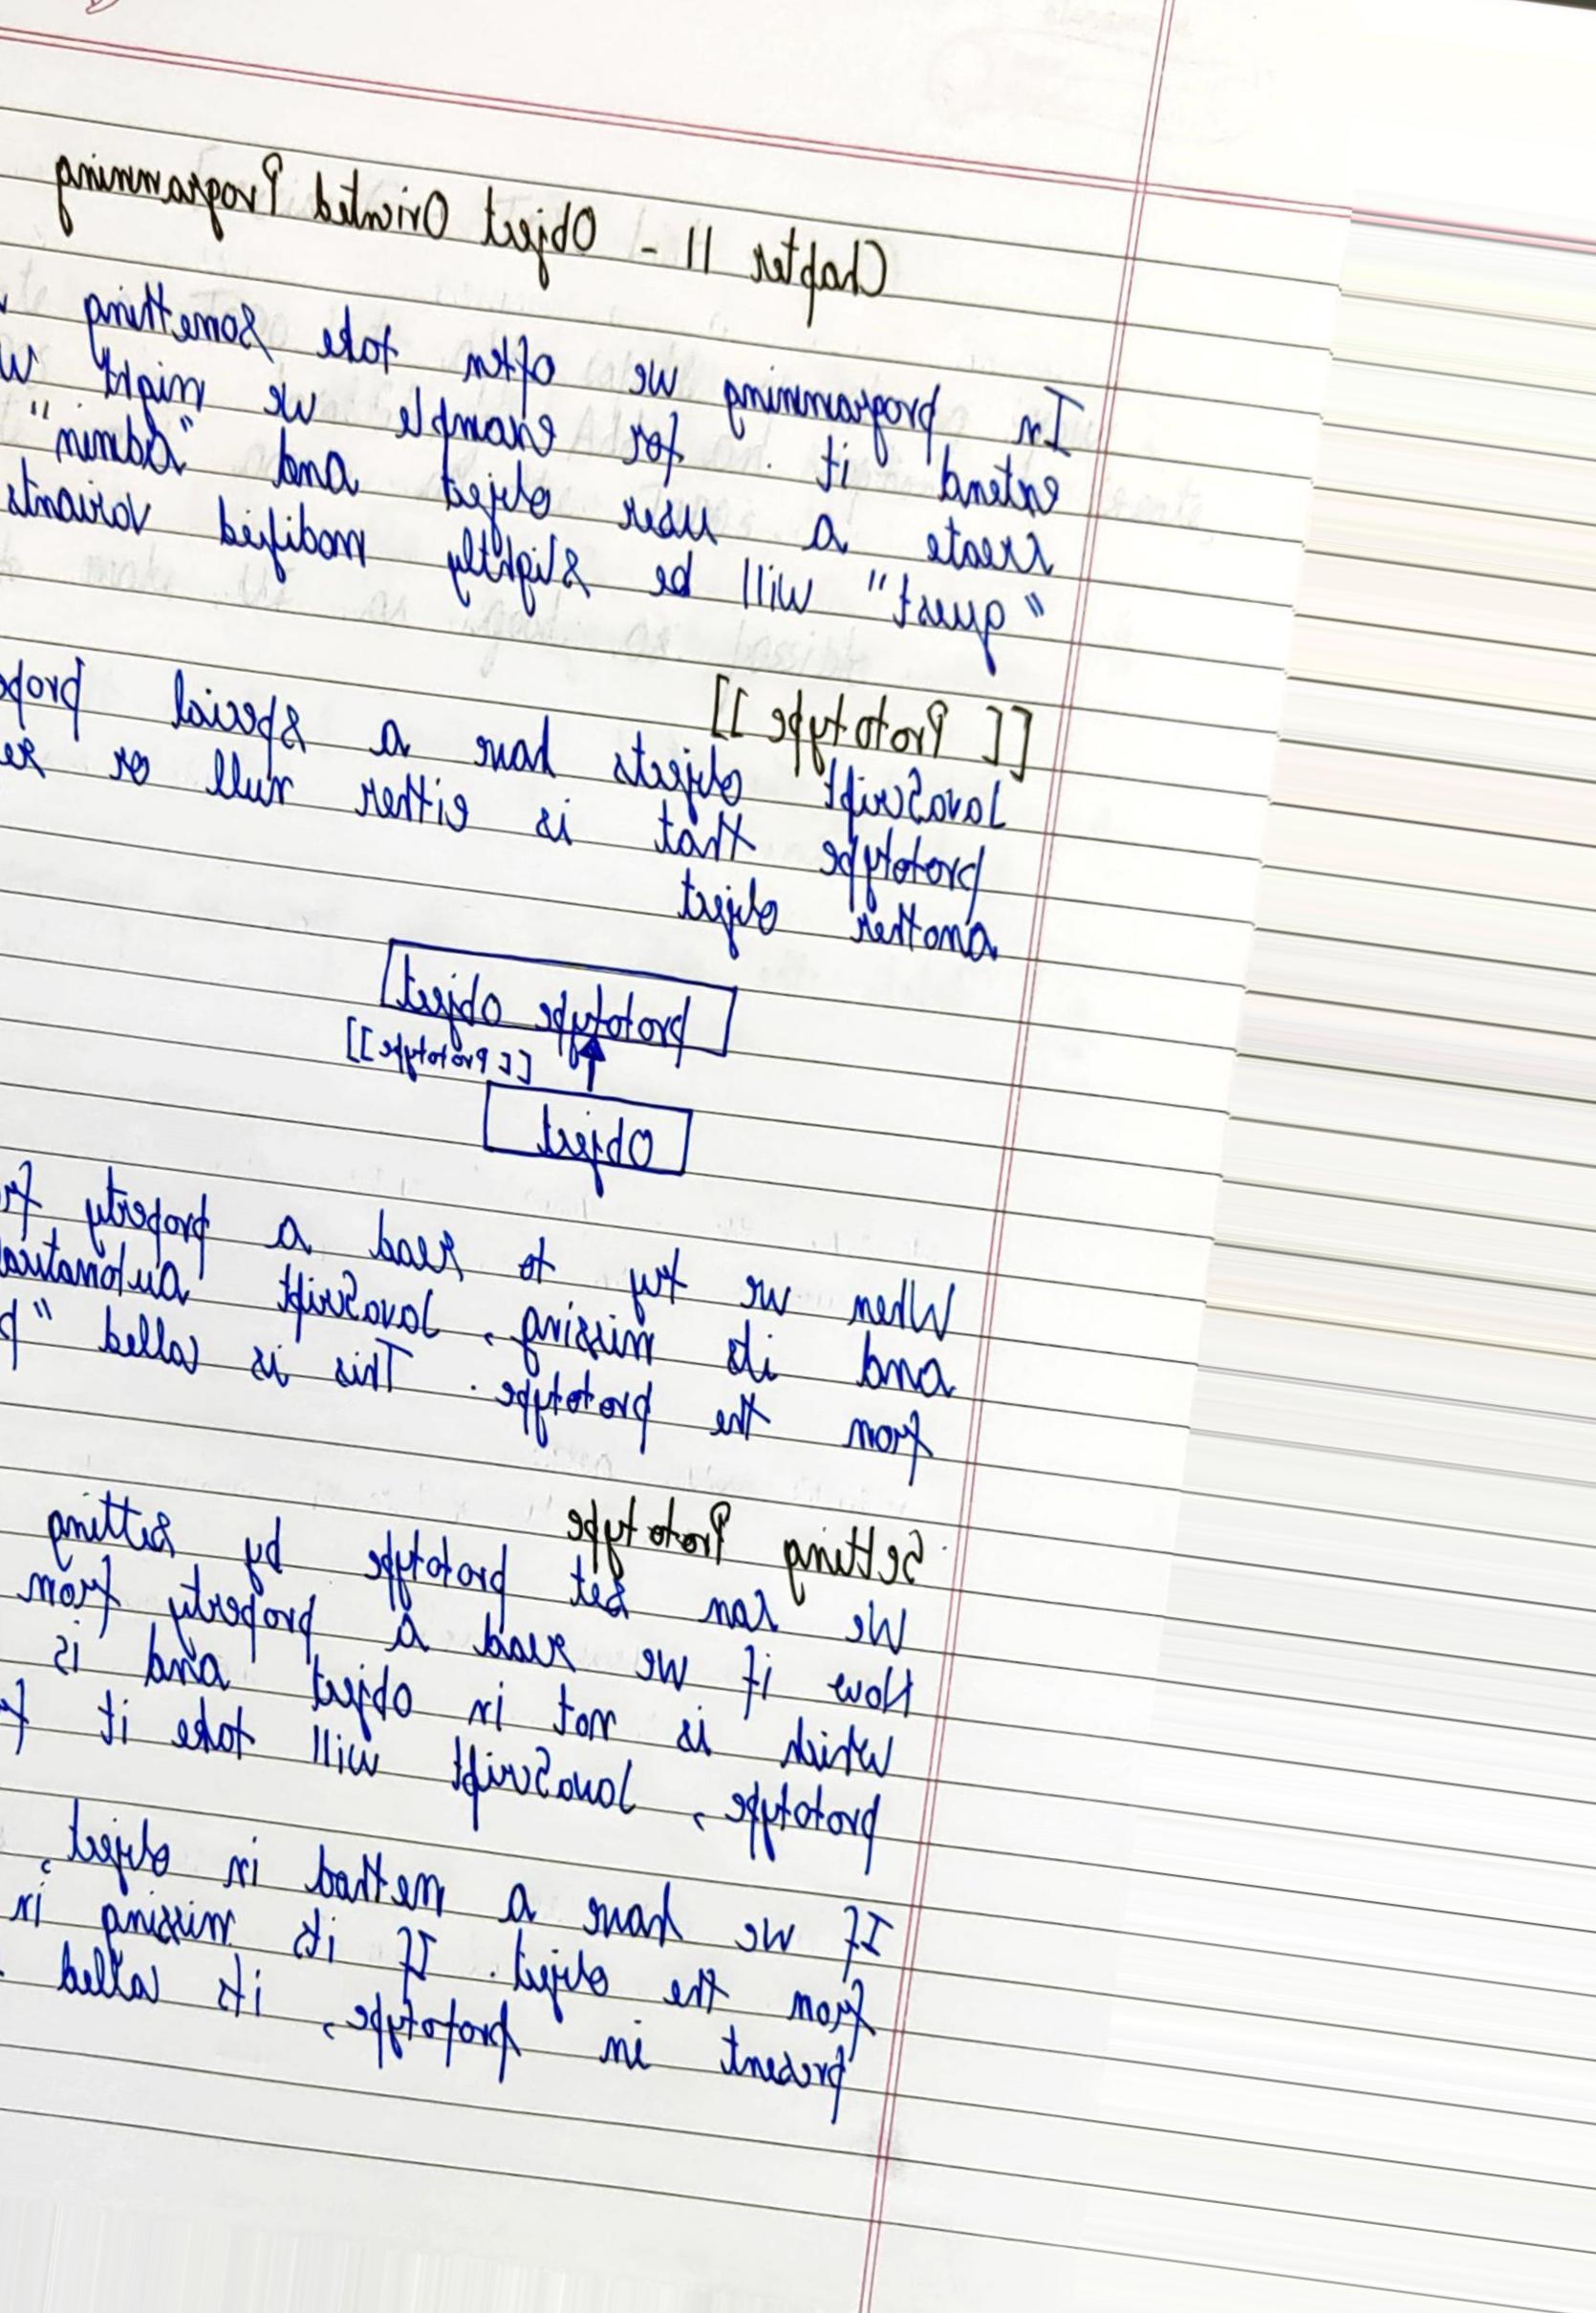 Chapter 11 - Object Oriented Programming
In programming we often take something
extend it. for example we might w
create a user object and "admin"
"guest" will be slightly modified variants
[[ Prototype ]]
JavaScript objects have a special prope
prototype that is either null or re
another object
prototype object
[[Prototype]]
Object
When we try to read a property fr
and its missing, JavaScript automatica
from the prototype. This is called "p
Setting Prototype
We can set prototype by setting
Now if we read a property from
which is not in object and is
prototype, JavaScript will take it f
If we have a method in object,
from the object. If its missing in
present in prototype, its called